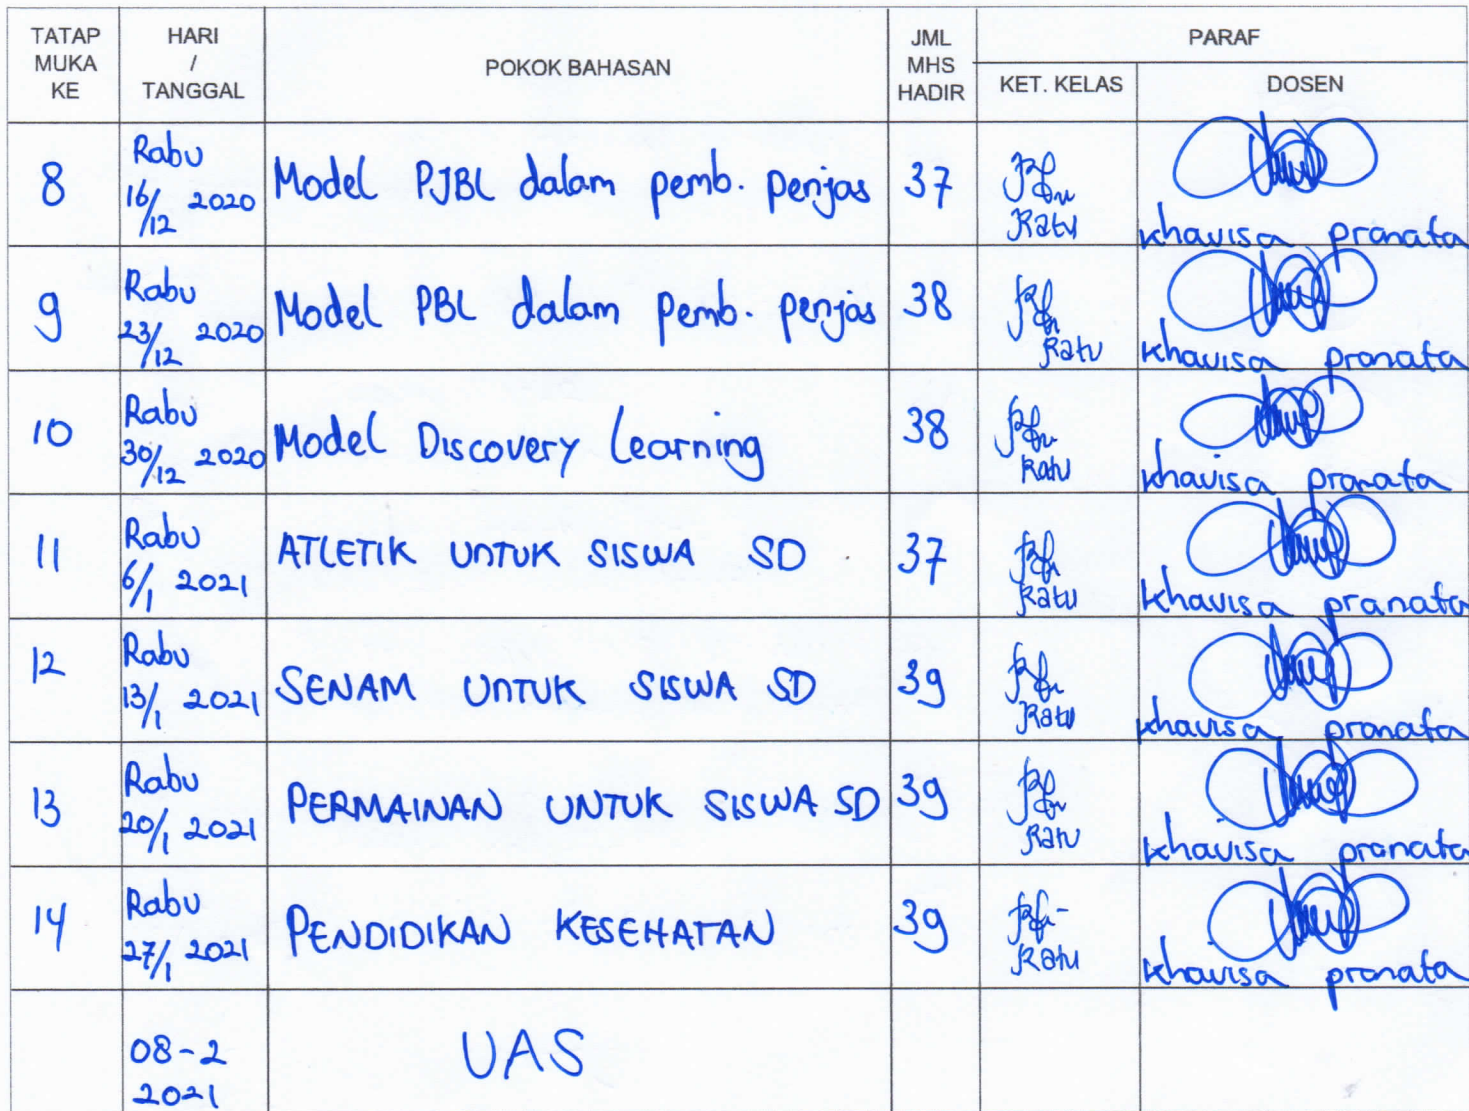 TATAP MUKA KE
HARI / TANGGAL
POKOK BAHASAN
JML MHS HADIR
PARAF
KET. KELAS
DOSEN
8
Rabu
16/12 2020
Model PJBL dalam pemb. penjas
37
Ratu
khavisa pranata
9
Rabu
23/12 2020
Model PBL dalam pemb. penjas
38
Ratu
khavisa pranata
10
Rabu
30/12 2020
Model Discovery Learning
38
Ratu
khavisa pranata
11
Rabu
6/1 2021
ATLETIK UNTUK SISWA SD
37
Ratu
khavisa pranata
12
Rabu
13/1 2021
SENAM UNTUK SISWA SD
39
Ratu
khavisa pranata
13
Rabu
20/1 2021
PERMAINAN UNTUK SISWA SD
39
Ratu
khavisa pranata
14
Rabu
27/1 2021
PENDIDIKAN KESEHATAN
39
Ratu
khavisa pranata
08-2
2021
UAS